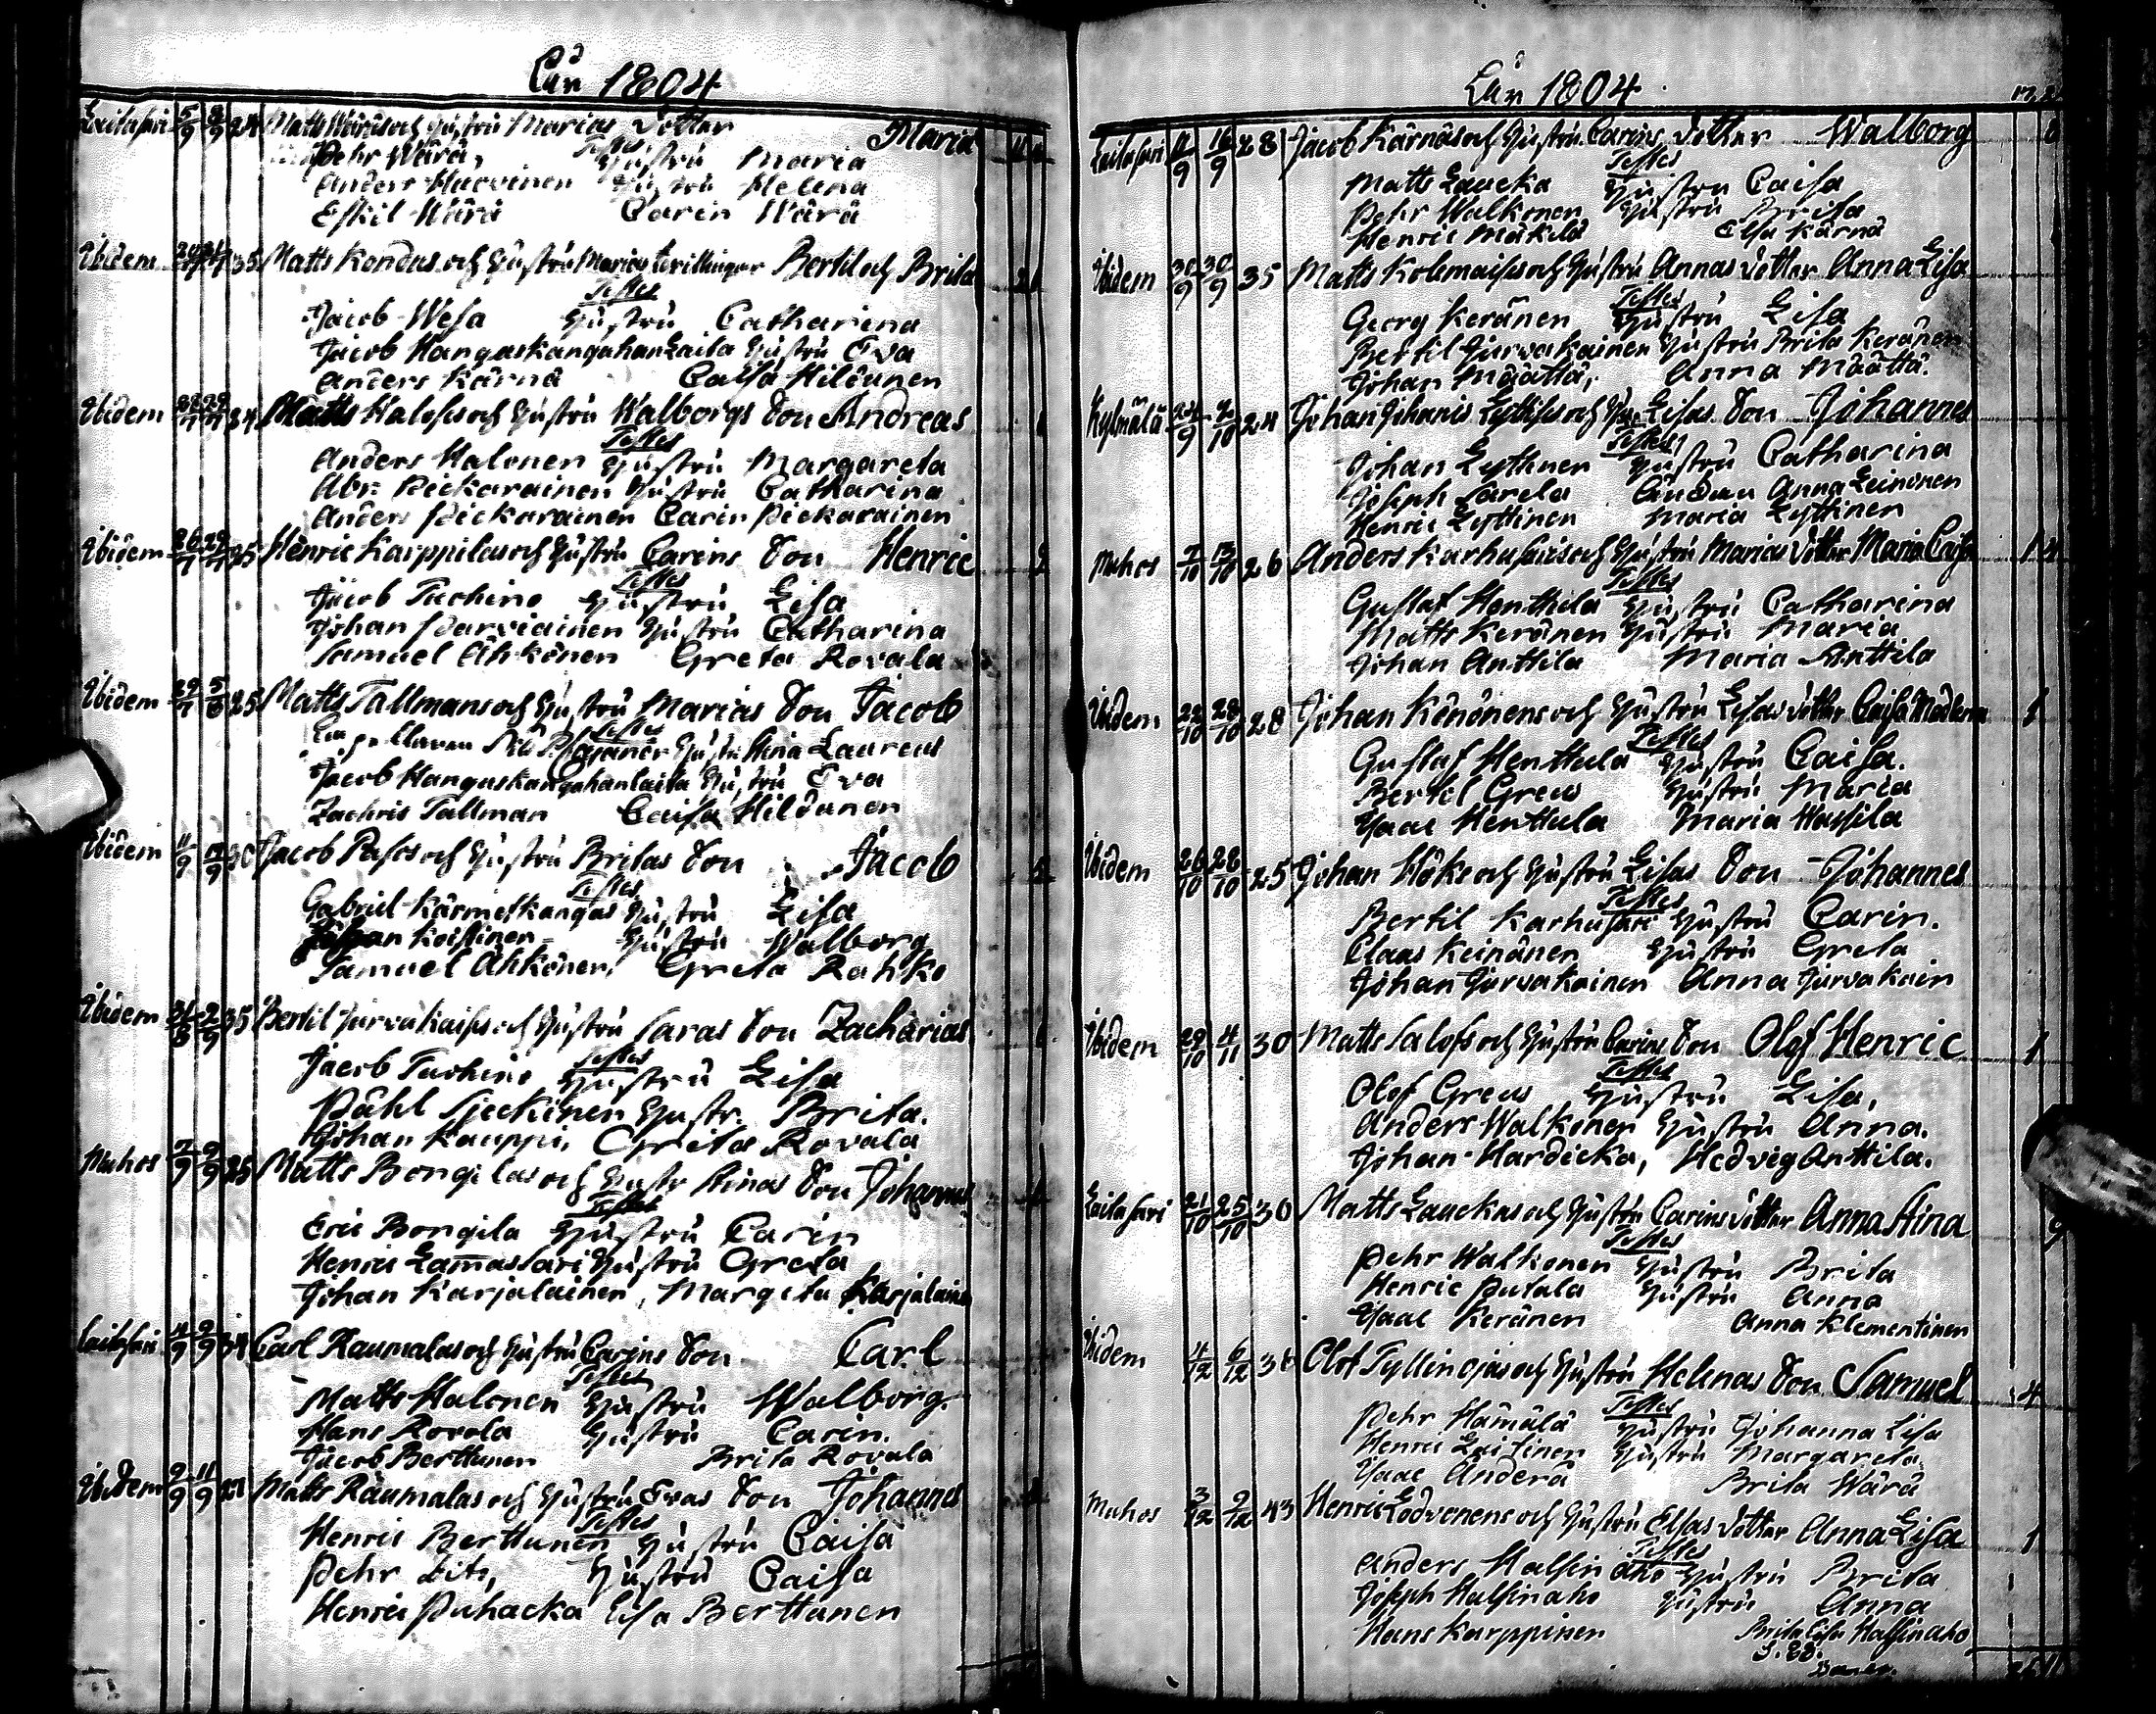 Åår 1804
Laitasari 5/9 8/9 24 Matts Wäräs och Hustru Marias Dotter Maria
Testes
Pehr Wärä, Hustru Maria
Anders Huovinen Hustru Helena
Eskil Wärä Carin Wärä
Ibidem 35 Matts Kondas och Hustru Marias tvillingar Bertil och Brita
Testes
Jacob Wesa Hustru Catharina
Jacob Hangaskangahanlaita Hustru Eva
Anders Kärnä Caisa Hildunen
Ibidem 34 Matts Halosss och Hustru Walborgs Son Andreas
Testes
Anders Halonen Hustru Margareta
Abr: Pickarainen Hustru Catharina
Anders Pickarainen Carin Pickarainen
Ibidem 25 Henric Karppilas och Hustru Carins Son Henric
Testes
Jacob Tuohino Hustru Lisa
Johan Parviainen Hustru Catharina
Samuel Ahkonen Greta Rovala
Ibidem 25 Matts Tallmans och Hustru Marias Son Jacob
Testes
Hustr Stina Laureus
Jacob Hangaskangahanlaita Hustru Eva
Zachris Tallman Caisa Hildunen
Ibidem 30 Jacob Pasos och Hustru Britas Son Jacob
Testes
Gabriel Kärmetkangas Hustru Lisa
Johan Koistinen Hustru Walborg
Samuel Ahkonen, Greta Rahko
Ibidem 31/8 2/9 35 Bertil Jurvakaiss och Hustru Saras Son Zacharias
Testes
Jacob Tuohino Hustru Lisa
Påhl Sjeckinen Hustr. Brita.
Johan Kauppi. Greta Rovala
Muhos 7/9 9/9 25 Matts Bongilas och Hustr Stinas Son Johannes
Testes
Eric Bongila Hustru Carin
Henric Lamassari Hustru Greta
Johan Karjalainen, Margeta Karjalain
Laitasari 4/9 9/9 34 Carl Raumalas och Hustru Carins Son Carl
Testes
Matts Halonen Hustru Walborg.
Hans Rovola Hustru Carin.
Jacob Berttunen Brita Rovala
Ibidem 9/9 11/9 27 Matts Räumalas och Hustru Evas Son Johannes
Testes
Henric Berttunen Hustru Caisa
Pehr Hustru Caisa
Henric Puhacka Lisa Berttunen
Åår 1804
Laitasari 11/9 16/9 28 Jacob Kärnäs och Hustru Carins Dotter Walborg
Testes
Matts Laucka Hustru Caisa
Pehr Walkonen Hustru Brita
Henric Mäkilä Elsa Kärnä
Ibidem 30/9 30/9 35 Matts Kolemaiss och Hustru Annas Dotter Anna Lisa
Testes
Georg Keränen Hustru Lisa
Bertil Jurvakainen Hustru Brita Keränen
Johan Määttä, Anna Määttä.
Kylmälä 24 Johan Johanis Lyttiss och Hust Lisas Son Johannes
Testes
Johan Lyttinen Hustru Catharina
Joseph Sarela Anna Leinonen
Henric Lyttinen Maria Lyttinen
Muhos 7/10 13/10 26 Anders Karhusaris och Hustru Marias Dotter Maria Caisa
Testes
Gustaf Henttula Hustru Catharina
Matts Keränen Hustru Maria
Johan Anttila Maria Anttila
Ibidem 22/10 28/10 28 Johan Könönens och Hustru Lisas Dotter Caisa Madlena
Testes
Gustaf Henttula Hustru Caisa.
Bertil Greus Hustru Maria
Isaac Henttula Maria Hassila
Ibidem 26/10 28/10 25 Johan Höks och Hustru Lisas Son Johannes
Testes
Bertil Karhusari Hustru Carin.
Claas Keinänen Hustru Greta
Johan Jurvakainen Anna Jurvakain
Ibidem 29/10 4/11 30 Matts Saloss och Hustru Carins Son Olof Henric
Testes
Olof Greus Hustru Lisa,
Anders Walkonen Hustru Anna.
Johan Hardicka, Hedvig Anttila.
Laitasari 21/10 25/10 30 Matts Lauckas och Hustru Carins Dotter Anna Stina
Testes
Pehr Walkonen Hustru Brita
Henric Putala Hustru Anna
Isaac Keränen Anna Klementinen
Ibidem 4/12 6/12 38 Olof Tyllinojas och Hustru Helenas Son Samuel
Testes
Pehr Hämälä Hustru Johanna Lisa
Henric Laitinen Hustru Margareta
Isaac Anderä Brita Wärä
Muhos 3/12 9/12 43 Henric Lodvonens och Hustru Elsas Dotter Anna Lisa
Testes
Anders Halsinaho Hustru Brita
Joseph Halsinaho Hustru Anna
Hans Karppinen Brita Lisa Halsinaho